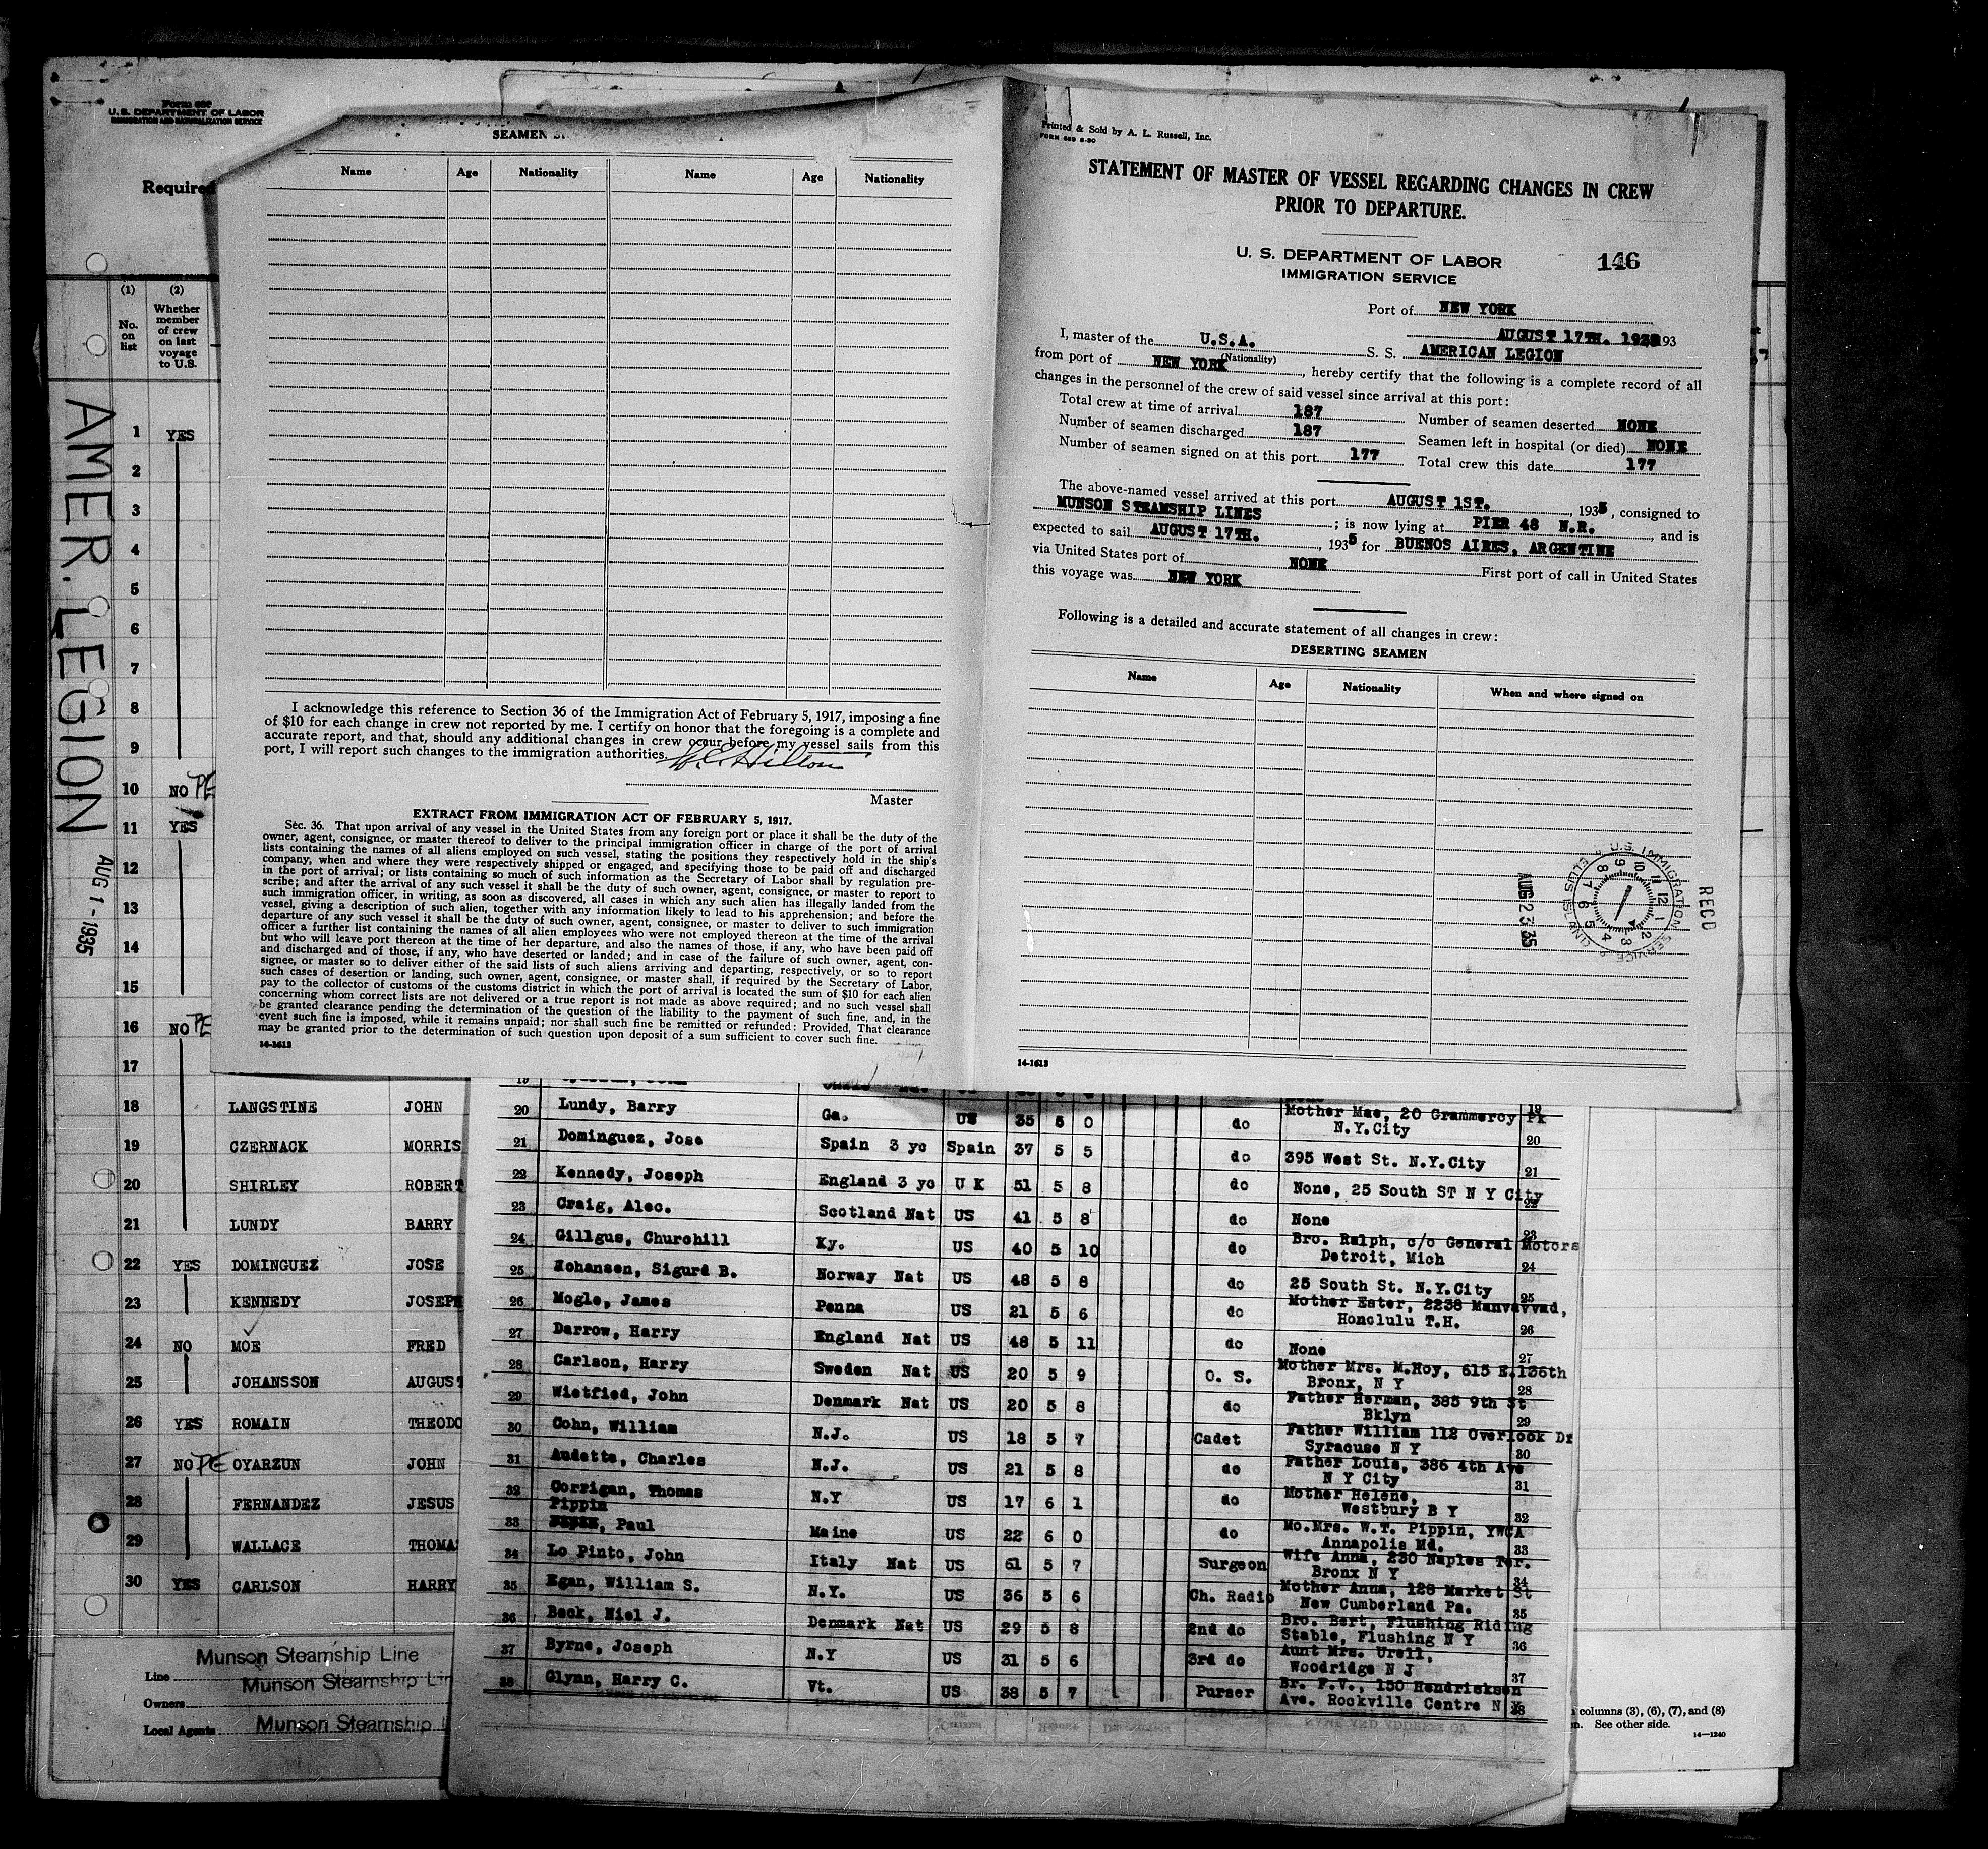 Form 689
U.S. DEPARTMENT OF LABOR
IMMIGRATION AND NATURALIZATION SERVICE
Required
(1) (2)
No. on list
Whether member of crew on last voyage to U.S.
AMER. LEGION
AUG 1 - 1935
1 YES
2
3
4
5
6
7
8
9
10 NO PE
11 YES
12
13
14
15
16 NO PE
17
18 LANGSTINE JOHN
19 CZERNACK MORRIS
20 SHIRLEY ROBERT
21 LUNDY BARRY
22 YES DOMINGUEZ JOSE
23 KENNEDY JOSEPH
24 NO MOE FRED
25 JOHANSSON AUGUST
26 YES ROMAIN THEODO
27 NO PE OYARZUN JOHN
28 FERNANDEZ JESUS
29 WALLACE THOMA
30 YES CARLSON HARRY
Munson Steamship Line
Line Munson Steamship Lin
Owners
Local Agents Munson Steamship L
SEAMEN
Name Age Nationality Name Age Nationality
I acknowledge this reference to Section 36 of the Immigration Act of February 5, 1917, imposing a fine
of $10 for each change in crew not reported by me. I certify on honor that the foregoing is a complete and
accurate report, and that, should any additional changes in crew occur before my vessel sails from this
port, I will report such changes to the immigration authorities.
Master
EXTRACT FROM IMMIGRATION ACT OF FEBRUARY 5, 1917.
Sec. 36. That upon arrival of any vessel in the United States from any foreign port or place it shall be the duty of the
owner, agent, consignee, or master thereof to deliver to the principal immigration officer in charge of the port of arrival
lists containing the names of all aliens employed on such vessel, stating the positions they respectively hold in the ship's
company, when and where they were respectively shipped or engaged, and specifying those to be paid off and discharged
in the port of arrival; or lists containing so much of such information as the Secretary of Labor shall by regulation pre-
scribe; and after the arrival of any such vessel it shall be the duty of such owner, agent, consignee, or master to report to
such immigration officer, in writing, as soon as discovered, all cases in which any such alien has illegally landed from the
vessel, giving a description of such alien, together with any information likely to lead to his apprehension; and before the
departure of any such vessel it shall be the duty of such owner, agent, consignee, or master to deliver to such immigration
officer a further list containing the names of all alien employees who were not employed thereon at the time of the arrival
but who will leave port thereon at the time of her departure, and also the names of those, if any, who have been paid off
and discharged and of those, if any, who have deserted or landed; and in case of the failure of such owner, agent, con-
signee, or master so to deliver either of the said lists of such aliens arriving and departing, respectively, or so to report
such cases of desertion or landing, such owner, agent, consignee, or master shall, if required by the Secretary of Labor,
pay to the collector of customs of the customs district in which the port of arrival is located the sum of $10 for each alien
concerning whom correct lists are not delivered or a true report is not made as above required; and no such vessel shall
be granted clearance pending the determination of the question of the liability to the payment of such fine, and, in the
event such fine is imposed, while it remains unpaid; nor shall such fine be remitted or refunded: Provided, That clearance
may be granted prior to the determination of such question upon deposit of a sum sufficient to cover such fine.
14-1613
Printed & Sold by A. L. Russell, Inc.
STATEMENT OF MASTER OF VESSEL REGARDING CHANGES IN CREW
PRIOR TO DEPARTURE.
U. S. DEPARTMENT OF LABOR 146
IMMIGRATION SERVICE
Port of NEW YORK
AUGUST 17TH. 193
I, master of the U.S.A. S. S. AMERICAN LEGION
(Nationality)
from port of NEW YORK, hereby certify that the following is a complete record of all
changes in the personnel of the crew of said vessel since arrival at this port:
Total crew at time of arrival 187 Number of seamen deserted NONE
Number of seamen discharged 187 Seamen left in hospital (or died) NONE
Number of seamen signed on at this port 177 Total crew this date 177
The above-named vessel arrived at this port AUGUST 1ST., 1935, consigned to
MUNSON STEAMSHIP LINES; is now lying at PIER 48 N.R., and is
expected to sail AUGUST 17TH., 1935 for BUENOS AIRES, ARGENTINE
via United States port of NONE First port of call in United States
this voyage was NEW YORK
Following is a detailed and accurate statement of all changes in crew:
DESERTING SEAMEN
Name Age Nationality When and where signed on
REC'D
U.S. IMMIGRATION SERVICE ELLIS ISLAND
12 1 2 3 4 5 6 7 8 9 10 11
AUG 23 35
14-1613
19
20 Lundy, Barry Ga. US 35 5 0 do Mother Mae, 20 Grammercy Pk
N.Y.City 20
21 Dominguez, Jose Spain 3 yc Spain 37 5 5 do 395 West St. N.Y.City 21
22 Kennedy, Joseph England 3 yc U K 51 5 8 do None, 25 South ST N Y City 22
23 Craig, Alec. Scotland Nat US 41 5 8 do None 23
24 Gillgus, Churchill Ky. US 40 5 10 do Bro. Ralph, c/o General Motors
Detroit, Mich 24
25 Johansen, Sigurd B. Norway Nat US 48 5 8 do 25 South St. N.Y.City 25
26 Mogle, James Penna US 21 5 6 do Mother Ester, 2238
Honolulu T.H. 26
27 Darrow, Harry England Nat US 48 5 11 do None 27
28 Carlson, Harry Sweden Nat US 20 5 9 O. S. Mother Mrs. M.Hoy, 615 E.136th
Bronx, N Y 28
29 Wietfied, John Denmark Nat US 20 5 8 do Father Herman, 385 9th St
Bklyn 29
30 Cohn, William N.J. US 18 5 7 Cadet Father William 112 Overlook Dr
Syracuse N Y 30
31 Audette, Charles N.J. US 21 5 8 do Father Louis, 386 4th Ave
N Y City 31
32 Corrigan, Thomas N.Y US 17 6 1 do Mother Helene,
Westbury B Y 32
Pippin
33 , Paul Maine US 22 6 0 do Mo.Mrs. W.T. Pippin, YWCA
Annapolis Md. 33
34 Lo Pinto, John Italy Nat US 61 5 7 Surgeon Wife Anna, 230 Naples Ter.
Bronx N Y 34
35 Egan, William S. N.Y. US 36 5 6 Ch. Radio Mother Anna, 128 Market St
New Cumberland Pa. 35
36 Beck, Niel J. Denmark Nat US 29 5 8 2nd do Bro. Bert, Flushing Riding
Stable, Flushing N Y 36
37 Byrne, Joseph N.Y US 31 5 6 3rd do Aunt Mrs. Urell,
Woodridge N J 37
38 Glynn, Harry C. Vt. US 38 5 7 Purser Br. F.V., 150 Hendrickson
Ave. Rockville Centre N Y 38
columns (3), (6), (7), and (8)
See other side.
14-1240